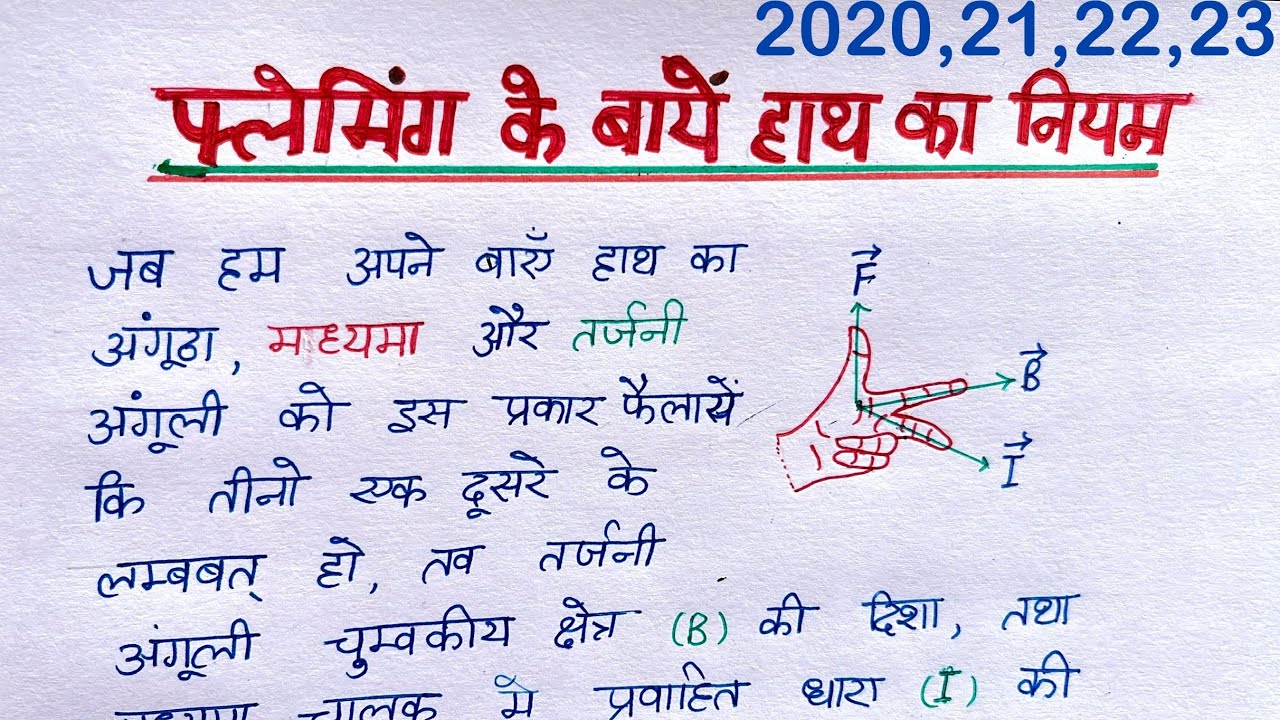 2020,21,22,23
फ्लेमिंग के बायें हाथ का नियम
जब हम अपने बाएँ हाथ का
अंगूठा, माध्यमा और तर्जनी
अंगूली को इस प्रकार फैलायें
कि तीनो एक दूसरे के
लम्बबत् हो, तव तर्जनी
अंगूली चुम्वकीय क्षेत्र (B) की दिशा, तथा
चालक मे प्रवाहित धारा (I) की
F
B
I